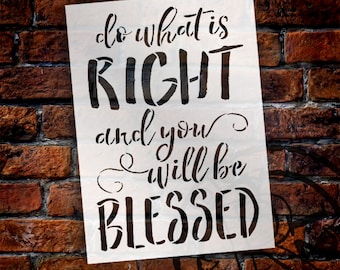 do what is
RIGHT
and you
will be
BLESSED